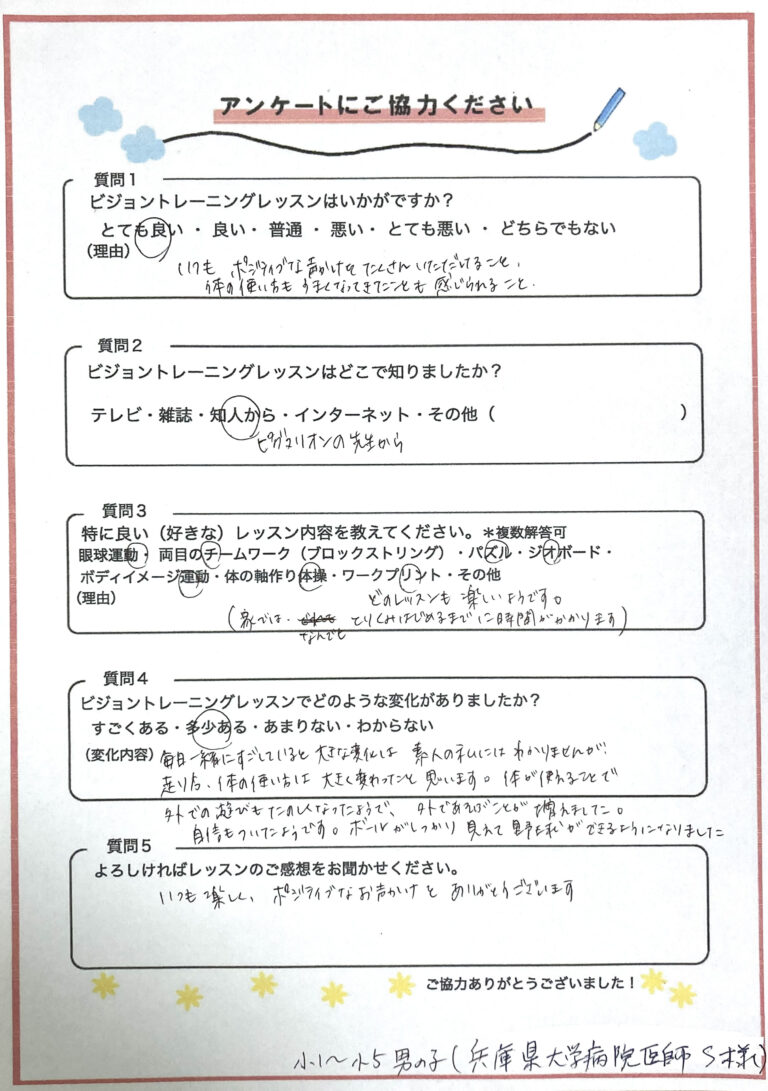 アンケートにご協力ください
質問1
ビジョントレーニングレッスンはいかがですか？
とても良い ・ 良い・ 普通 ・ 悪い・ とても悪い ・ どちらでもない
（理由）
いつも ポジティブな声かけを たくさん いただいてること、
体の使い方も うまくなってきたことも 感じられること.
質問2
ビジョントレーニングレッスンはどこで知りましたか？
テレビ・雑誌・知人から・インターネット・その他（ ）
ピグマリオンの先生から
質問3
特に良い（好きな）レッスン内容を教えてください。＊複数解答可
眼球運動・ 両目のチームワーク（ブロックストリング）・パズル・ジオボード・
ボディイメージ運動・体の軸作り体操・ワークプリント・その他
（理由）
どのレッスンも 楽しいようです。
（家では、なんでも とりくみはじめるまでに時間がかかります）
質問4
ビジョントレーニングレッスンでどのような変化がありましたか？
すごくある・多少ある・あまりない・わからない
（変化内容）毎日一緒にすごしていると 大きな変化は 素人の私にはわかりませんが、
走り方、体の使い方は 大きく変わったと 思います。体が使えることで
外での遊びも たのしくなったようで、外であそぶことが 増えました。
自信もついたようです。ボールがしっかり 見えて 野球ができるようになりました
質問5
よろしければレッスンのご感想をお聞かせください。
いつも楽しく、ポジティブなお声かけを ありがとうございます
ご協力ありがとうございました！
小1〜小5 男の子（兵庫県大学病院医師 S様）